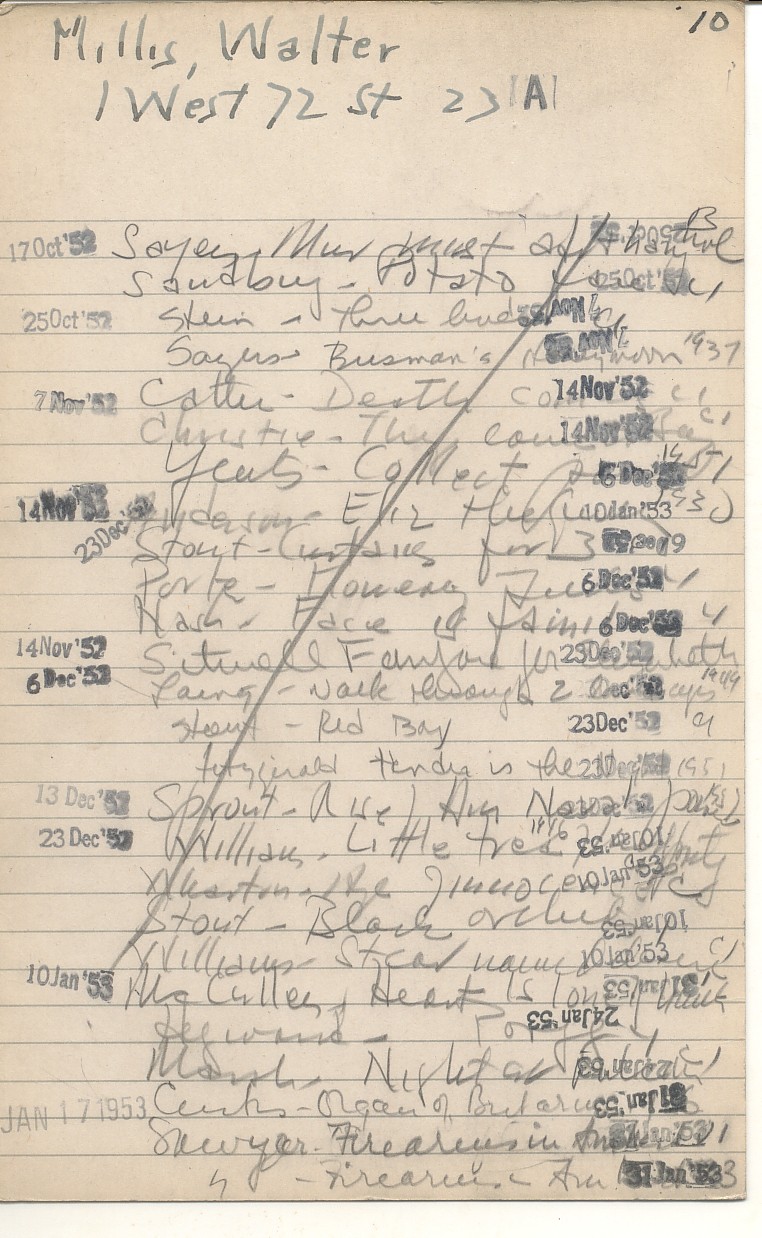 10
Millis, Walter
1 West 72 St 23 A
17 Oct '52 Sayers, Mur must adv
Sandburg - Potato 25 Oct '52 c1
25 Oct '52 Stein - Three lives 7 Nov '52 c1
Sayers Busman's Honeymoon 1937 7 Nov '52
7 Nov '52 Cather - Death com 14 Nov '52 c1
Christie - They came 14 Nov '52 c1
Yeats - Collect 6 Dec '52 1951
14 Nov '52 23 Dec '52 Anderson - Eliz the 10 Jan '53 1930
Stout - Curtains for 3
Porter - Flowering Judas 6 Dec '52
Nash - Face is fam 6 Dec '52
14 Nov '52 Sitwell Fanfare for Elizabeth 23 Dec '52
6 Dec '52 Laing - Walk through 2 Dec '52 1949
Stout - Red Box 23 Dec '52
Fitzgerald Tender is the 23 Dec '52 1951
13 Dec '52 Sprout - Rise Am Naval
23 Dec '52 Williams - Little Tree 1946 10 Jan '53
Wharton - Age Innocence 10 Jan '53
Stout - Black orchids 10 Jan '53
Williams - Stcar named 10 Jan '53 c1
10 Jan '53 McCullers, Heart Is lonely hunt 31 Jan '53
Heyward - Porgy 24 Jan '53
Marsh - Night at 24 Jan '53
JAN 17 1953 Curtis - Organ of Britan 31 Jan '53
Sawyer - Firearms in Am 31 Jan '53
" - Firearms - Am 31 Jan '53